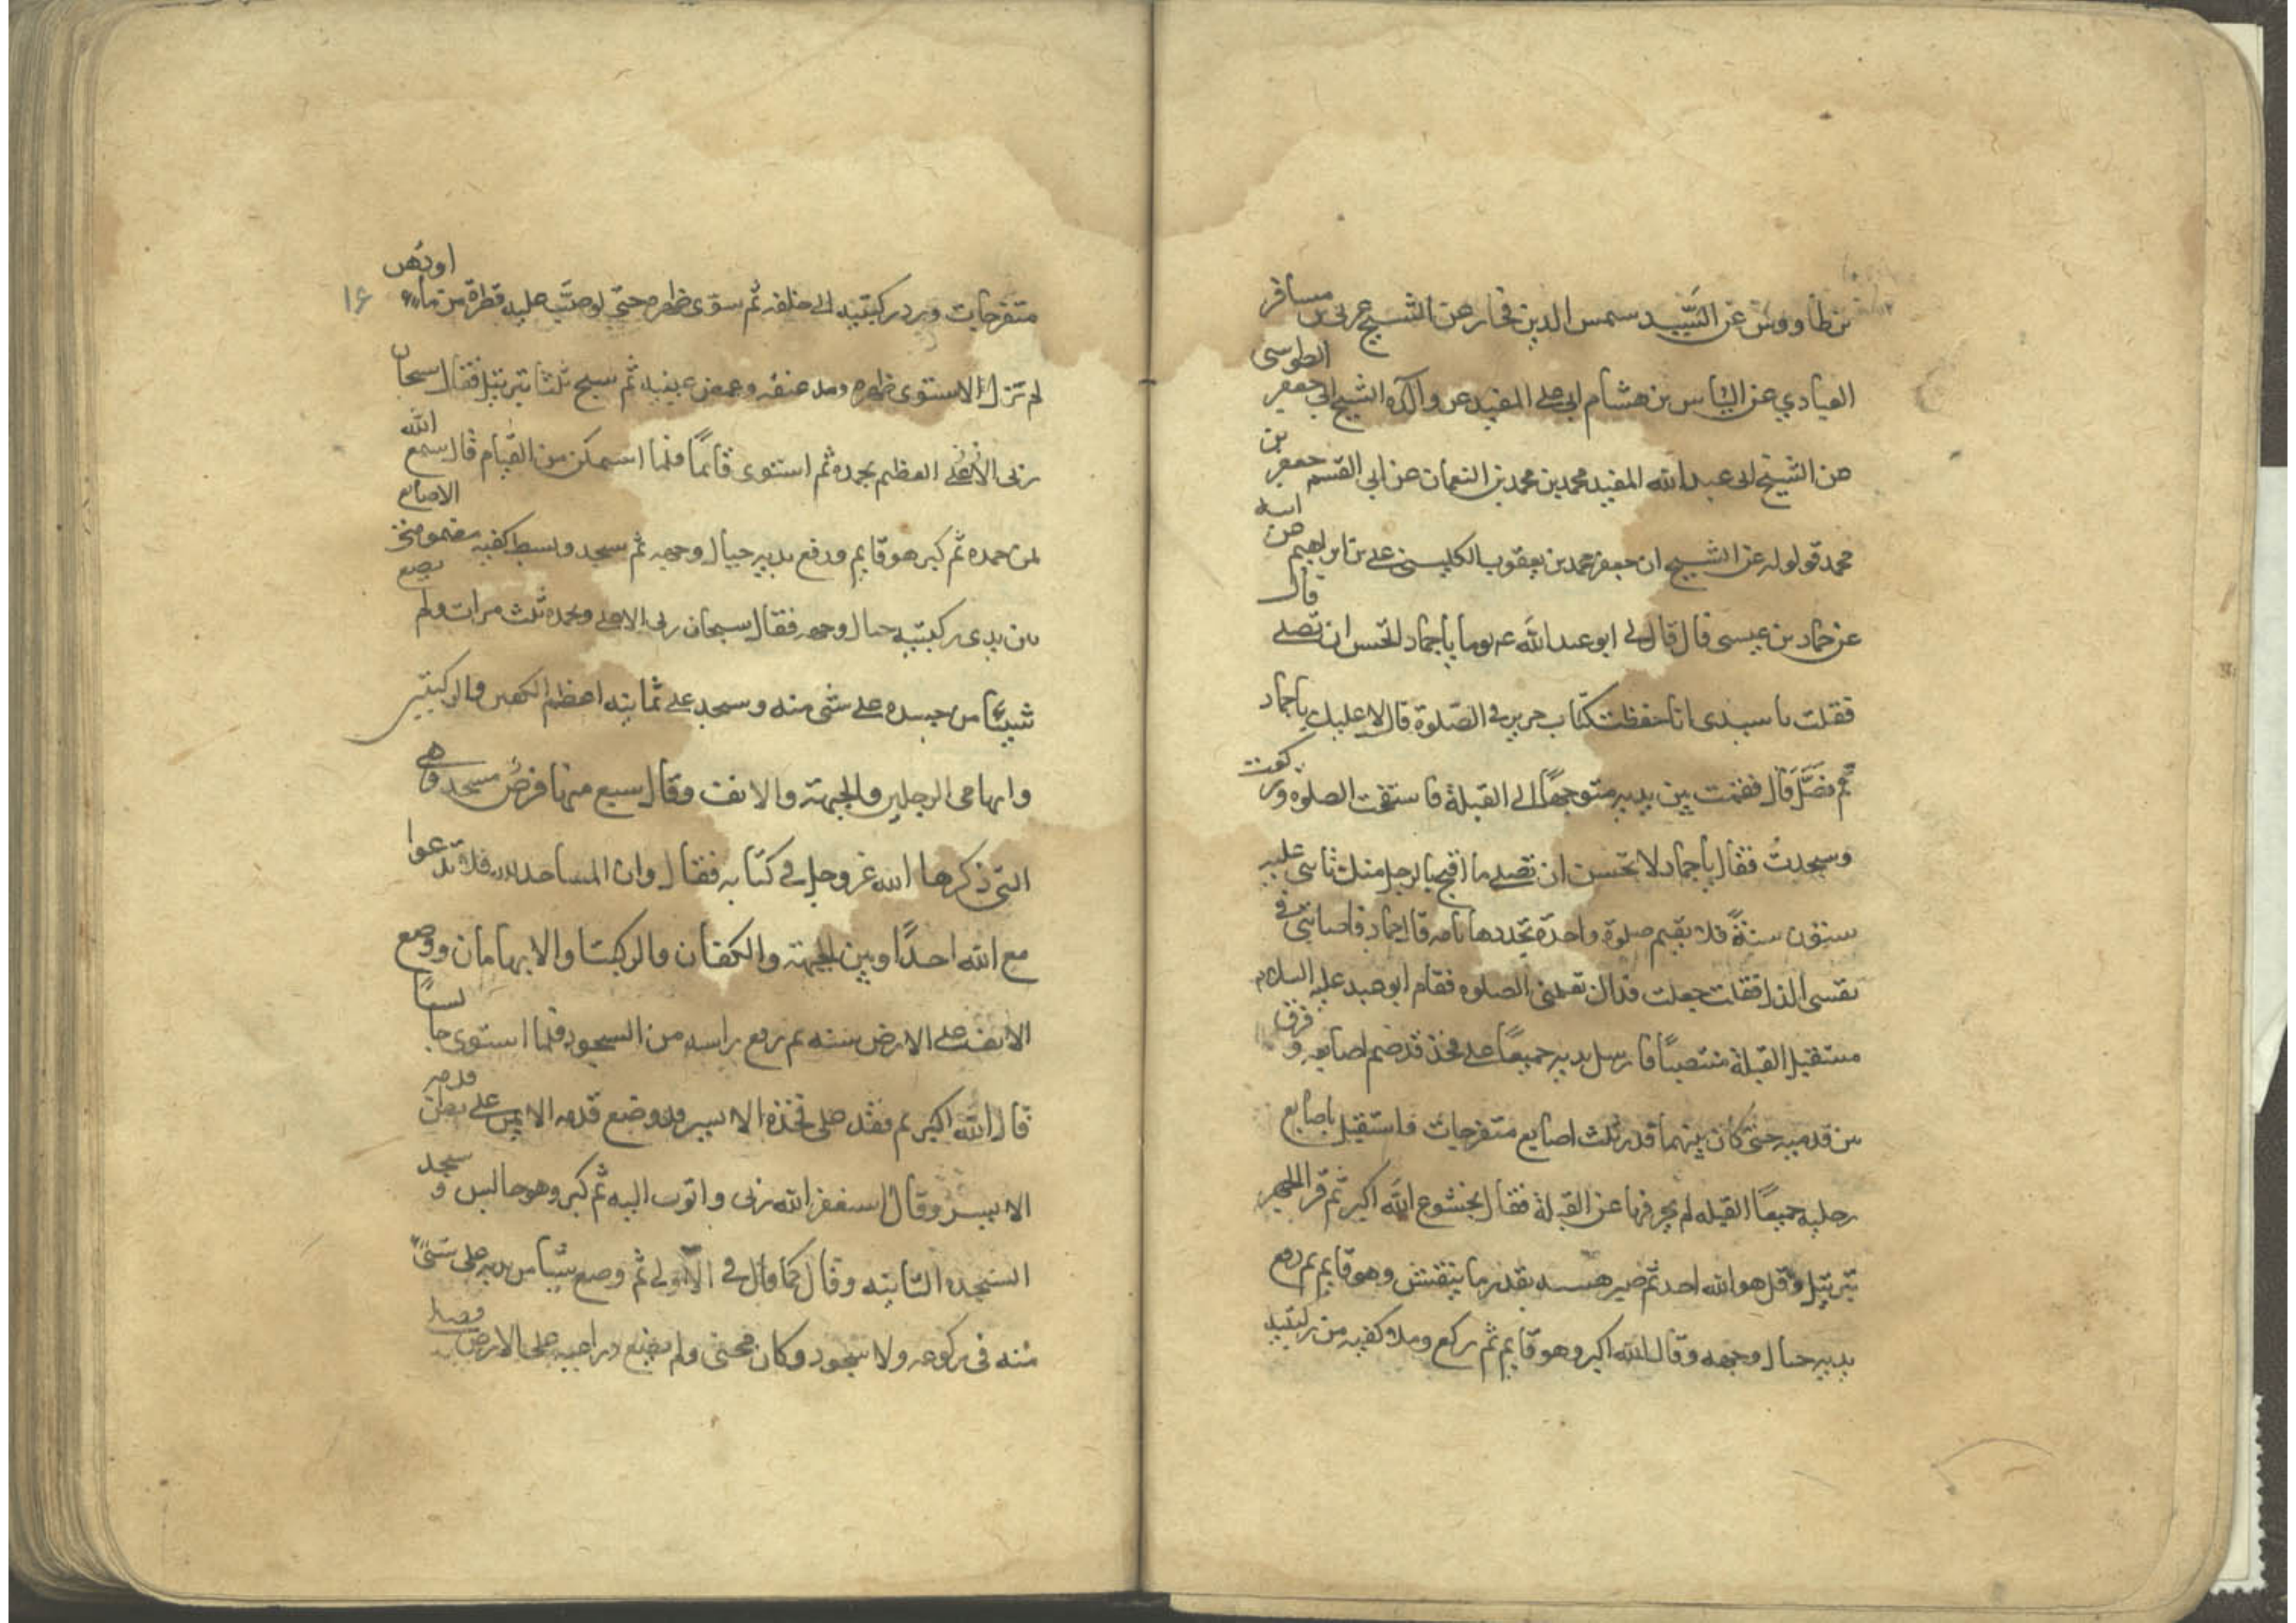 بن طاووس عن السيد سمس الدين فخار عن الشيخ عربي بن مسافر
العبادي عن الياس بن هشام ابي علي المفيد عن والده الشيخ ابي جعفر الطوسي
عن الشيخ ابي عبد الله المفيد محمد بن محمد بن النعمان عن ابي القسم جعفر بن
محمد قولوله عن الشيخ ابن جعفر محمد بن يعقوب الكليني علي بن ابراهيم عن ابيه
عن حماد بن عيسى قال قال لي ابو عبد الله ع يوما يا حماد اتحسن ان تصلي قال
فقلت يا سيدي انا حفظت كتاب حريز في الصلوة قال لا عليك يا حماد
قم فصل قال فقمت بين يديه متوجها الى القبلة فاستفتحت الصلوة وركعت
وسجدت فقال يا حماد لا تحسن ان تصلي ما اقبح بالرجل منك تاتي عليه
ستون سنة فلا يقيم صلوة واحدة بحدودها تامه قال حماد فاصابني في
نفسي الذل فقلت جعلت فداك فعلمني الصلوه فقام ابو عبد عليه السلام
مستقبل القبلة منتصبا فارسل يديه جميعا على فخذ قد ضم اصابعه وفرق
بين قدميه حتى كان بينهما قدر ثلث اصابع متفرجات فاستقبل باصابع
رجليه جميعا القبله لم يحرفها عن القبلة فقال بخشوع الله اكبر ثم قرا الحمد
بترتيل وقل هو الله احد ثم صبر هسه بقدر ما يتنفس وهو قايم ثم رفع
يديه حيال وجهه وقال الله اكبر وهو قايم ثم ركع وملا كفيه من ركبتيه
متفرجات ورد ركبتيه الى خلفه ثم سوى ظهره حتى لو صب عليه قطرة من ماء او دهن
۱۶
لم تزل لاستوى ظهره ومد عنقه وغمض عينيه ثم سبح ثلثا بترتيل فقال سبحان
ربي الاعلى العظيم بحمده ثم استوى قائما فلما استمكن من القيام قال سمع الله
لمن حمده ثم كبر هو قايم ورفع يديه حيال وجهه ثم سجد وبسط كفيه مضمومتي الاصابع
بين يدي ركبتيه حيال وجهه فقال سبحان ربي الاعلى وبحمده ثلث مرات ولم يضع
شيئا من جسده على شي منه وسجد على ثمانيه اعظم الكفين والركبتين
وابهامي الرجلين والجبهة والانف وقال سبع منها فرض مسجد وهي
التي ذكرها الله عز وجل في كتابه فقال وان المساجد لله فلا تدعوا
مع الله احدا وبين الجبهة والكفان والركبتا والابهامان ووضع
الانف على الارض سنه ثم رفع راسه من السجود فلما استوى جالسا
قال الله اكبر ثم فقد على فخذه الايسر قد وضع قدمه الايمن على بطن قدمه
الايسر وقال استغفر الله ربي واتوب اليه ثم كبر وهو جالس وسجد
السجده الثانيه وقال كما قال في الاولى ثم وضع شيئا من يديه على شيء
منه في ركوعه ولا سجود وكان مجنحى ولم يضع ذراعيه على الارض فصلى